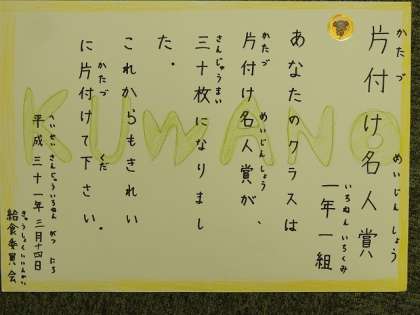 片付け名人賞
かたづ めいじんしょう
一年一組
いちねんいちくみ
あなたのクラスは
片付け名人賞が、
かたづ めいじんしょう
三十枚になりまし
さんじゅうまい
た。
これからもきれい
に片付けて下さい。
かたづ くだ
平成三十一年三月十四日
給食委員会
きゅうしょくいいんかい
KUWANO